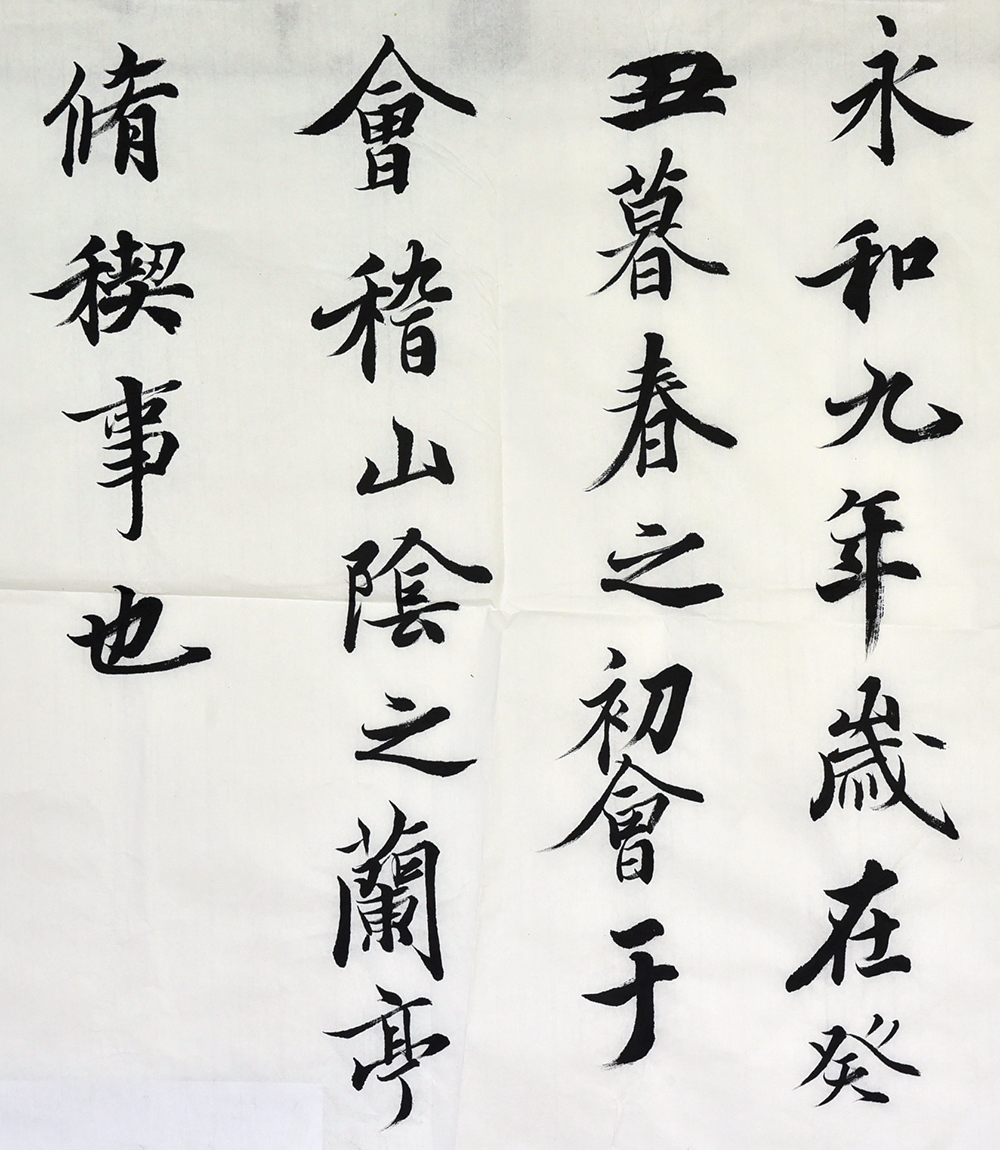 永和九年歲在癸
丑暮春之初會于
會稽山陰之蘭亭
脩稧事也